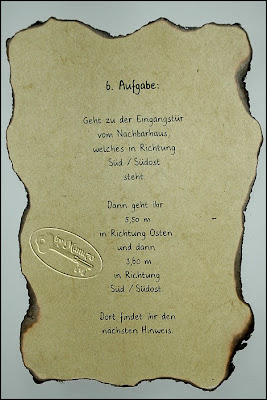 6. Aufgabe:
Geht zu der Eingangstür
vom Nachbarhaus,
welches in Richtung
Süd / Südost
steht.
Dann geht ihr
5,50 m
in Richtung Osten
und dann
3,60 m
in Richtung
Süd / Südost.
Dort findet ihr den
nächsten Hinweis.